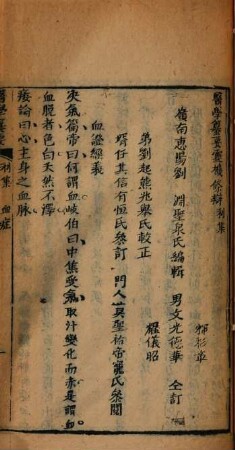 醫學纂要靈機條辨 利集
輝彬章
嶺南惠陽劉 淵聖泉氏編輯 男文光德華 仝訂
耀儀昭
弟劉起熊兆舉氏較正
婿任其信有恒氏參訂 門人葉聖佑帝寵氏參閱
血證經義
決氣篇帝曰何謂血岐伯曰中焦受氣取汁變化而赤是謂血
血脫者色白夭然不澤
痿論曰心主身之血脈
醫學纂要 利集 血症